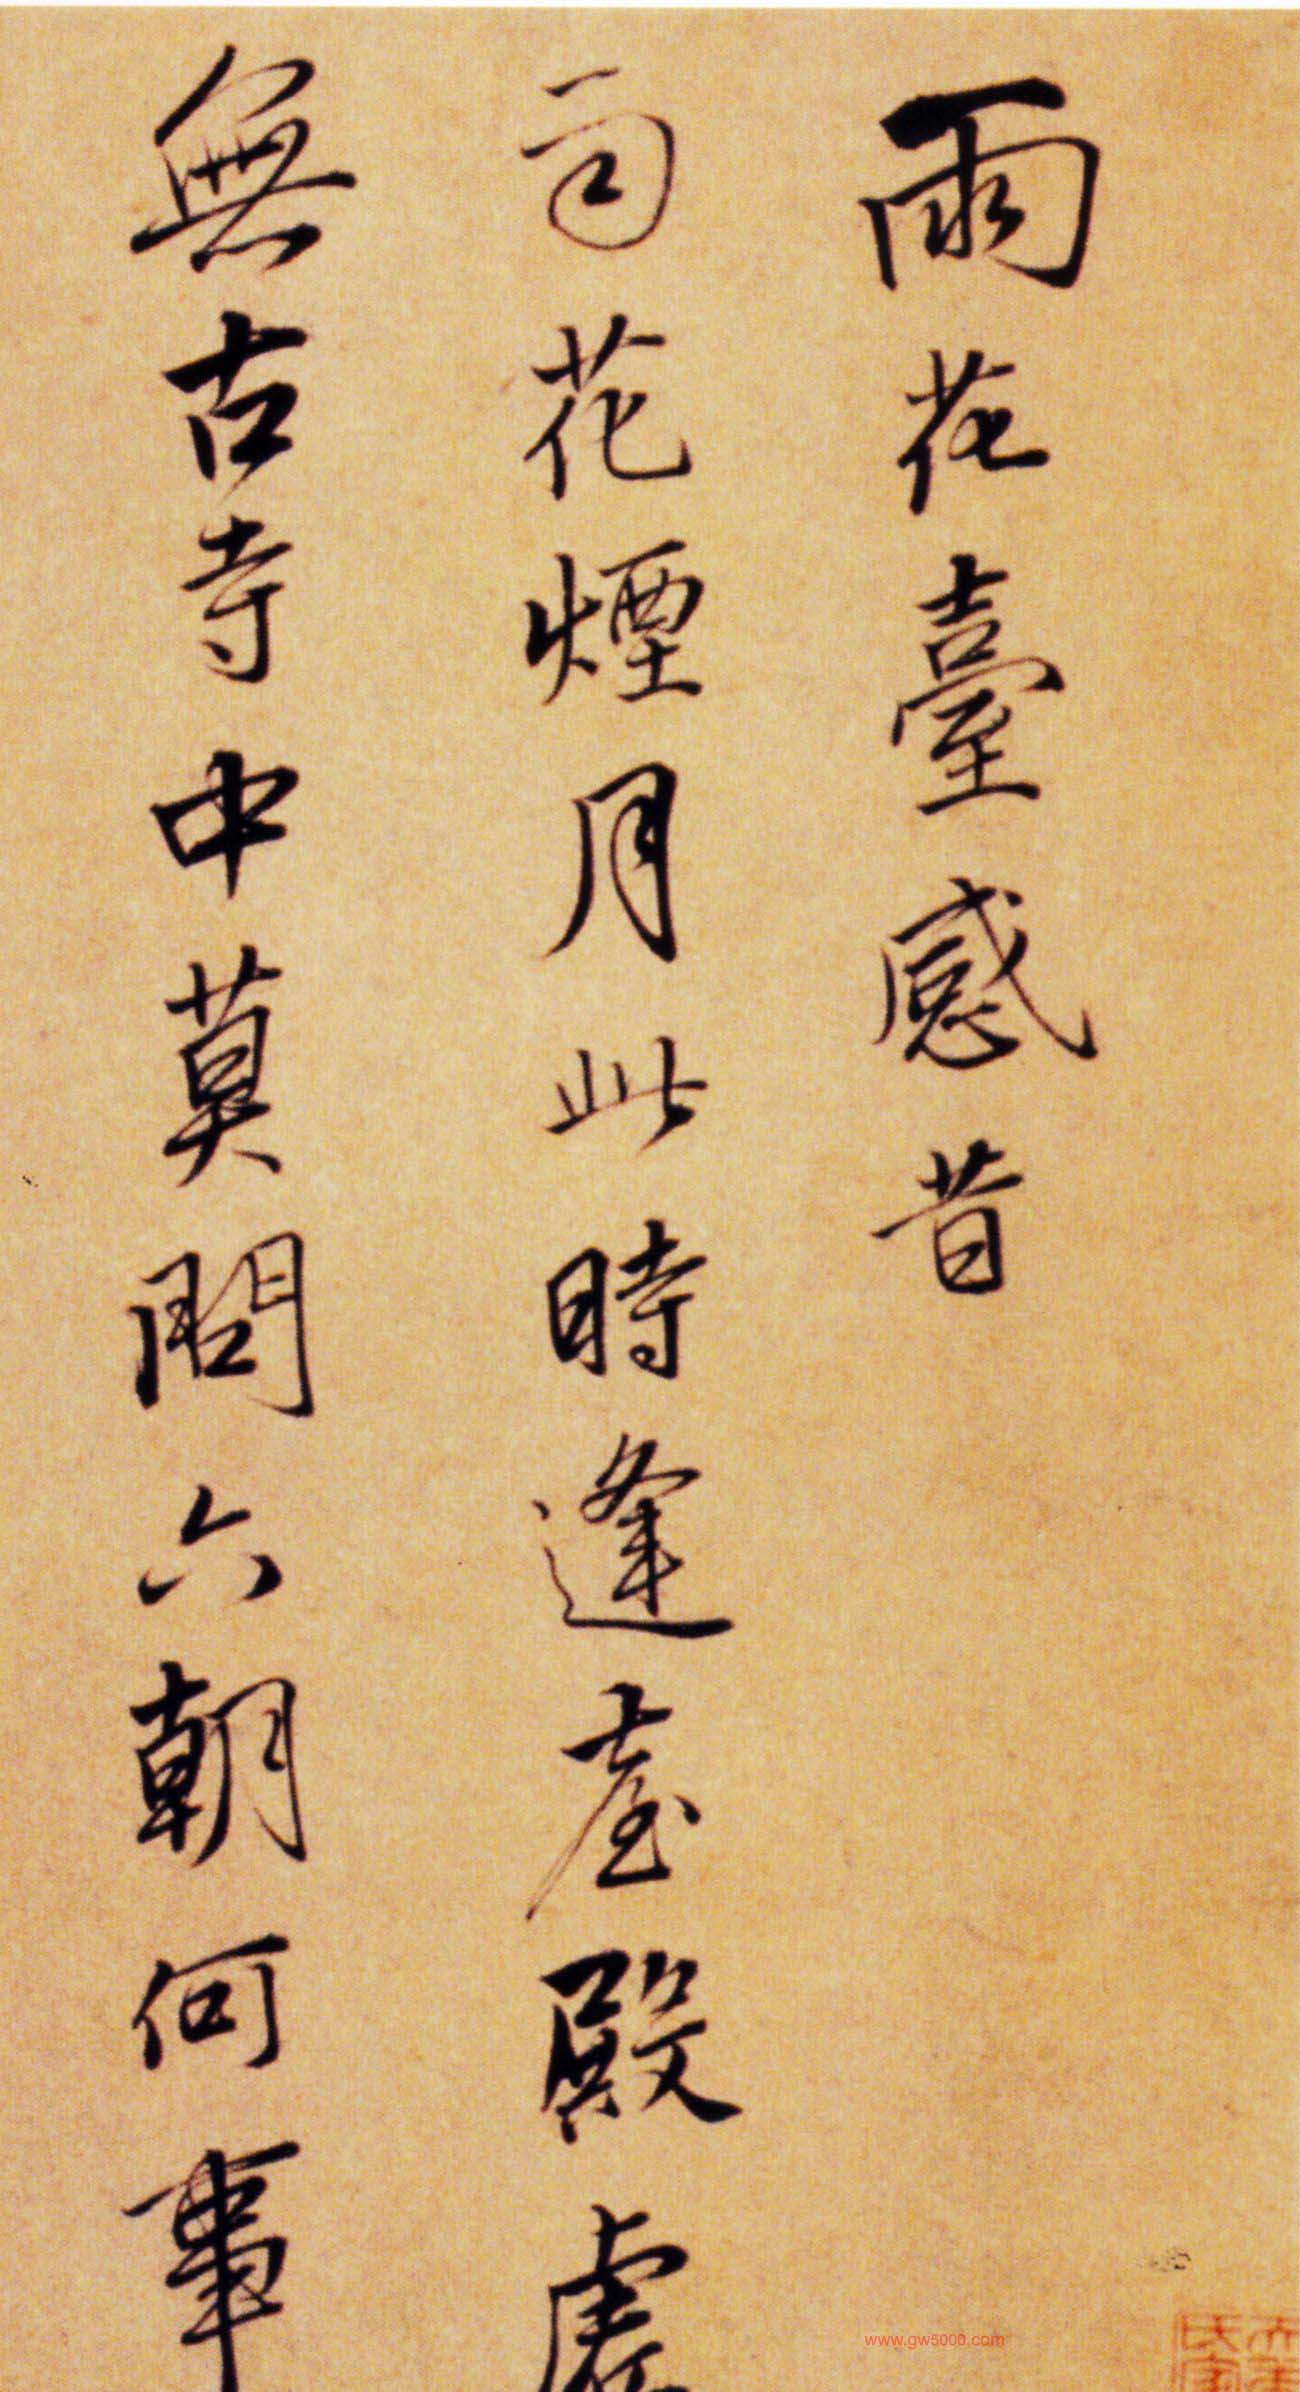 雨花臺感昔
雨花煙月此時逢臺殿虛
無古寺中莫問六朝何事
www.gw5000.com